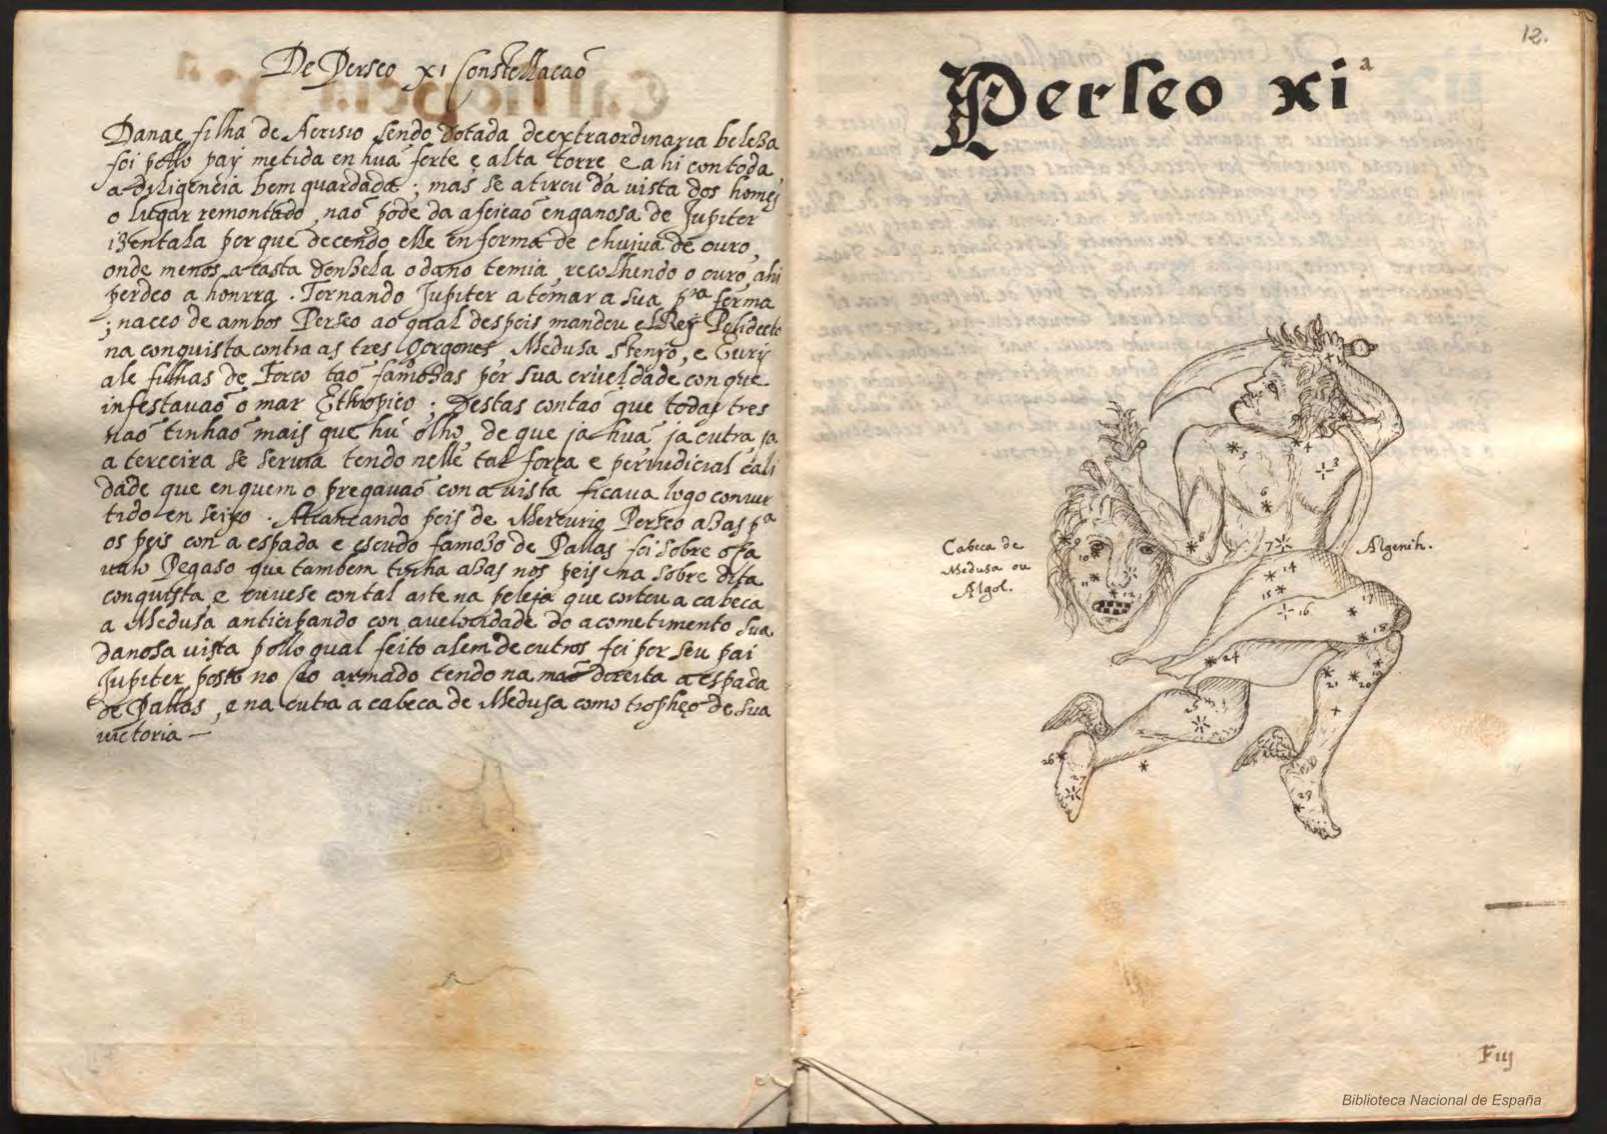 De Perseo xi Constellacaõ
Danae filha de Acrisio sendo dotada de extraordinaria beleza
foi pollo pay metida en huã forte e alta torre e ahi con toda
a diligencia bem guardada; mas se a tirou da vista dos homẽs
o lugar remontado, naõ pode da afeicaõ enganosa de Jupiter
izentala por que decendo elle en forma de chuiva de ouro,
onde menos a casta donzela o dano temia, recolhendo o ouro, ahi
perdeo a honrra. Tornando Jupiter a tomar a sua pra forma
; naceo de ambos Perseo ao qual despois mandou el Rey Polidecto
na conquista contra as tres Gorgones, Medusa Stenyo, e Eury
ale filhas de Forco taõ famozas por sua crueldade con que
infestavaõ o mar Ethiopico; Destas contaõ que todas tres
naõ tinhaõ mais que hũ olho, de que ja huã ja outra ja
a terceira se servia tendo nelle tal força e periudicial cali
dade que en quem o pregavaõ con a vista ficava logo conver
tido en seixo. Alcancando pois de Mercurio Perseo azas pa
os peis con a espada e escudo famozo de Pallas foi sobre o ca
valo Pegaso que tambem tinha azas nos peis na sobre dita
conquista, e ouvese con tal arte na peleja que cortou a cabeca
a Medusa anticipando con a velocidade do acometimento sua
danosa vista pollo qual feito alem de outros foi por seu pai
Jupiter posto no Ceo armado tendo na maõ dereita a espada
de Pallas, e na outra a cabeca de Medusa como tropheo de sua
victoria —
12.
Perseo xi a
Cabeca de
Medusa ou
Algol.
Algenih.
3
4
5
6
7
8
9
10
11
12
14
15
16
17
18
19
20
21
24
25
26
27
23
Fiij
Biblioteca Nacional de España